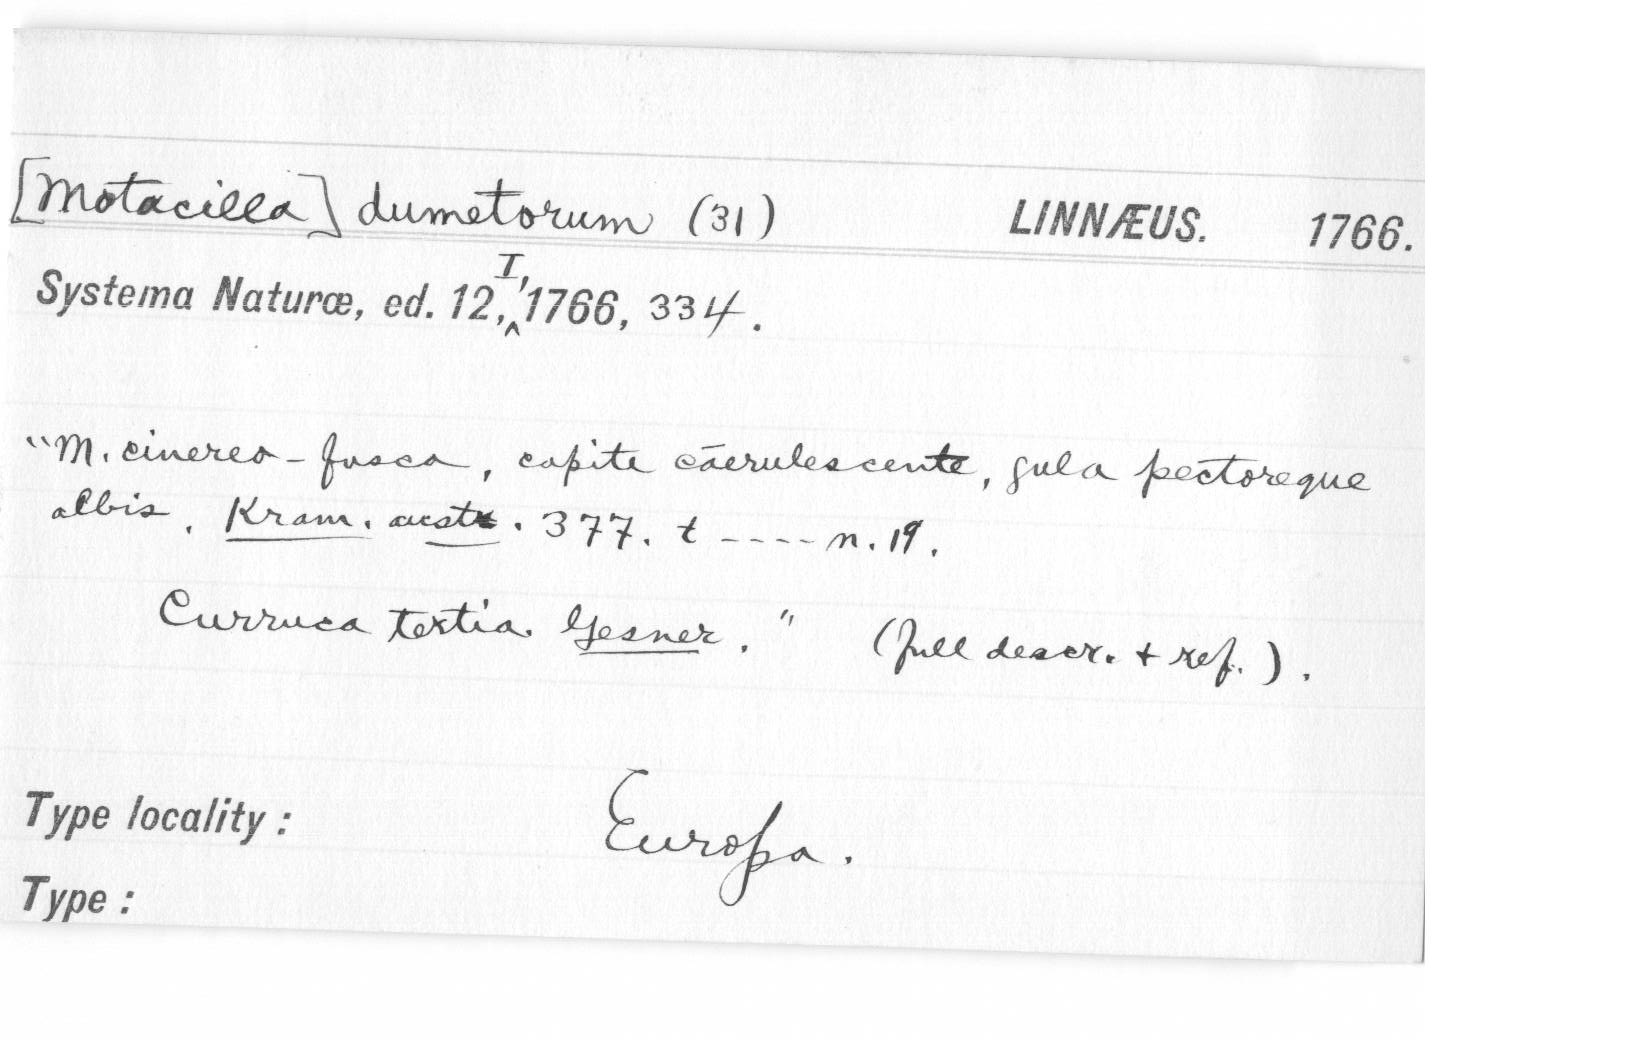 [Motacilla] dumetorum (31) LINNÆUS. 1766.
Systema Naturæ, ed. 12, I, 1766, 334.
"M. cinereo-fusca, capite cäerulescente, gula pectoreque
albis. Kram. aust. 377. t ---- n. 19.
Curruca tertia. Gesner." (full descr. + ref.).
Type locality: Europa.
Type: